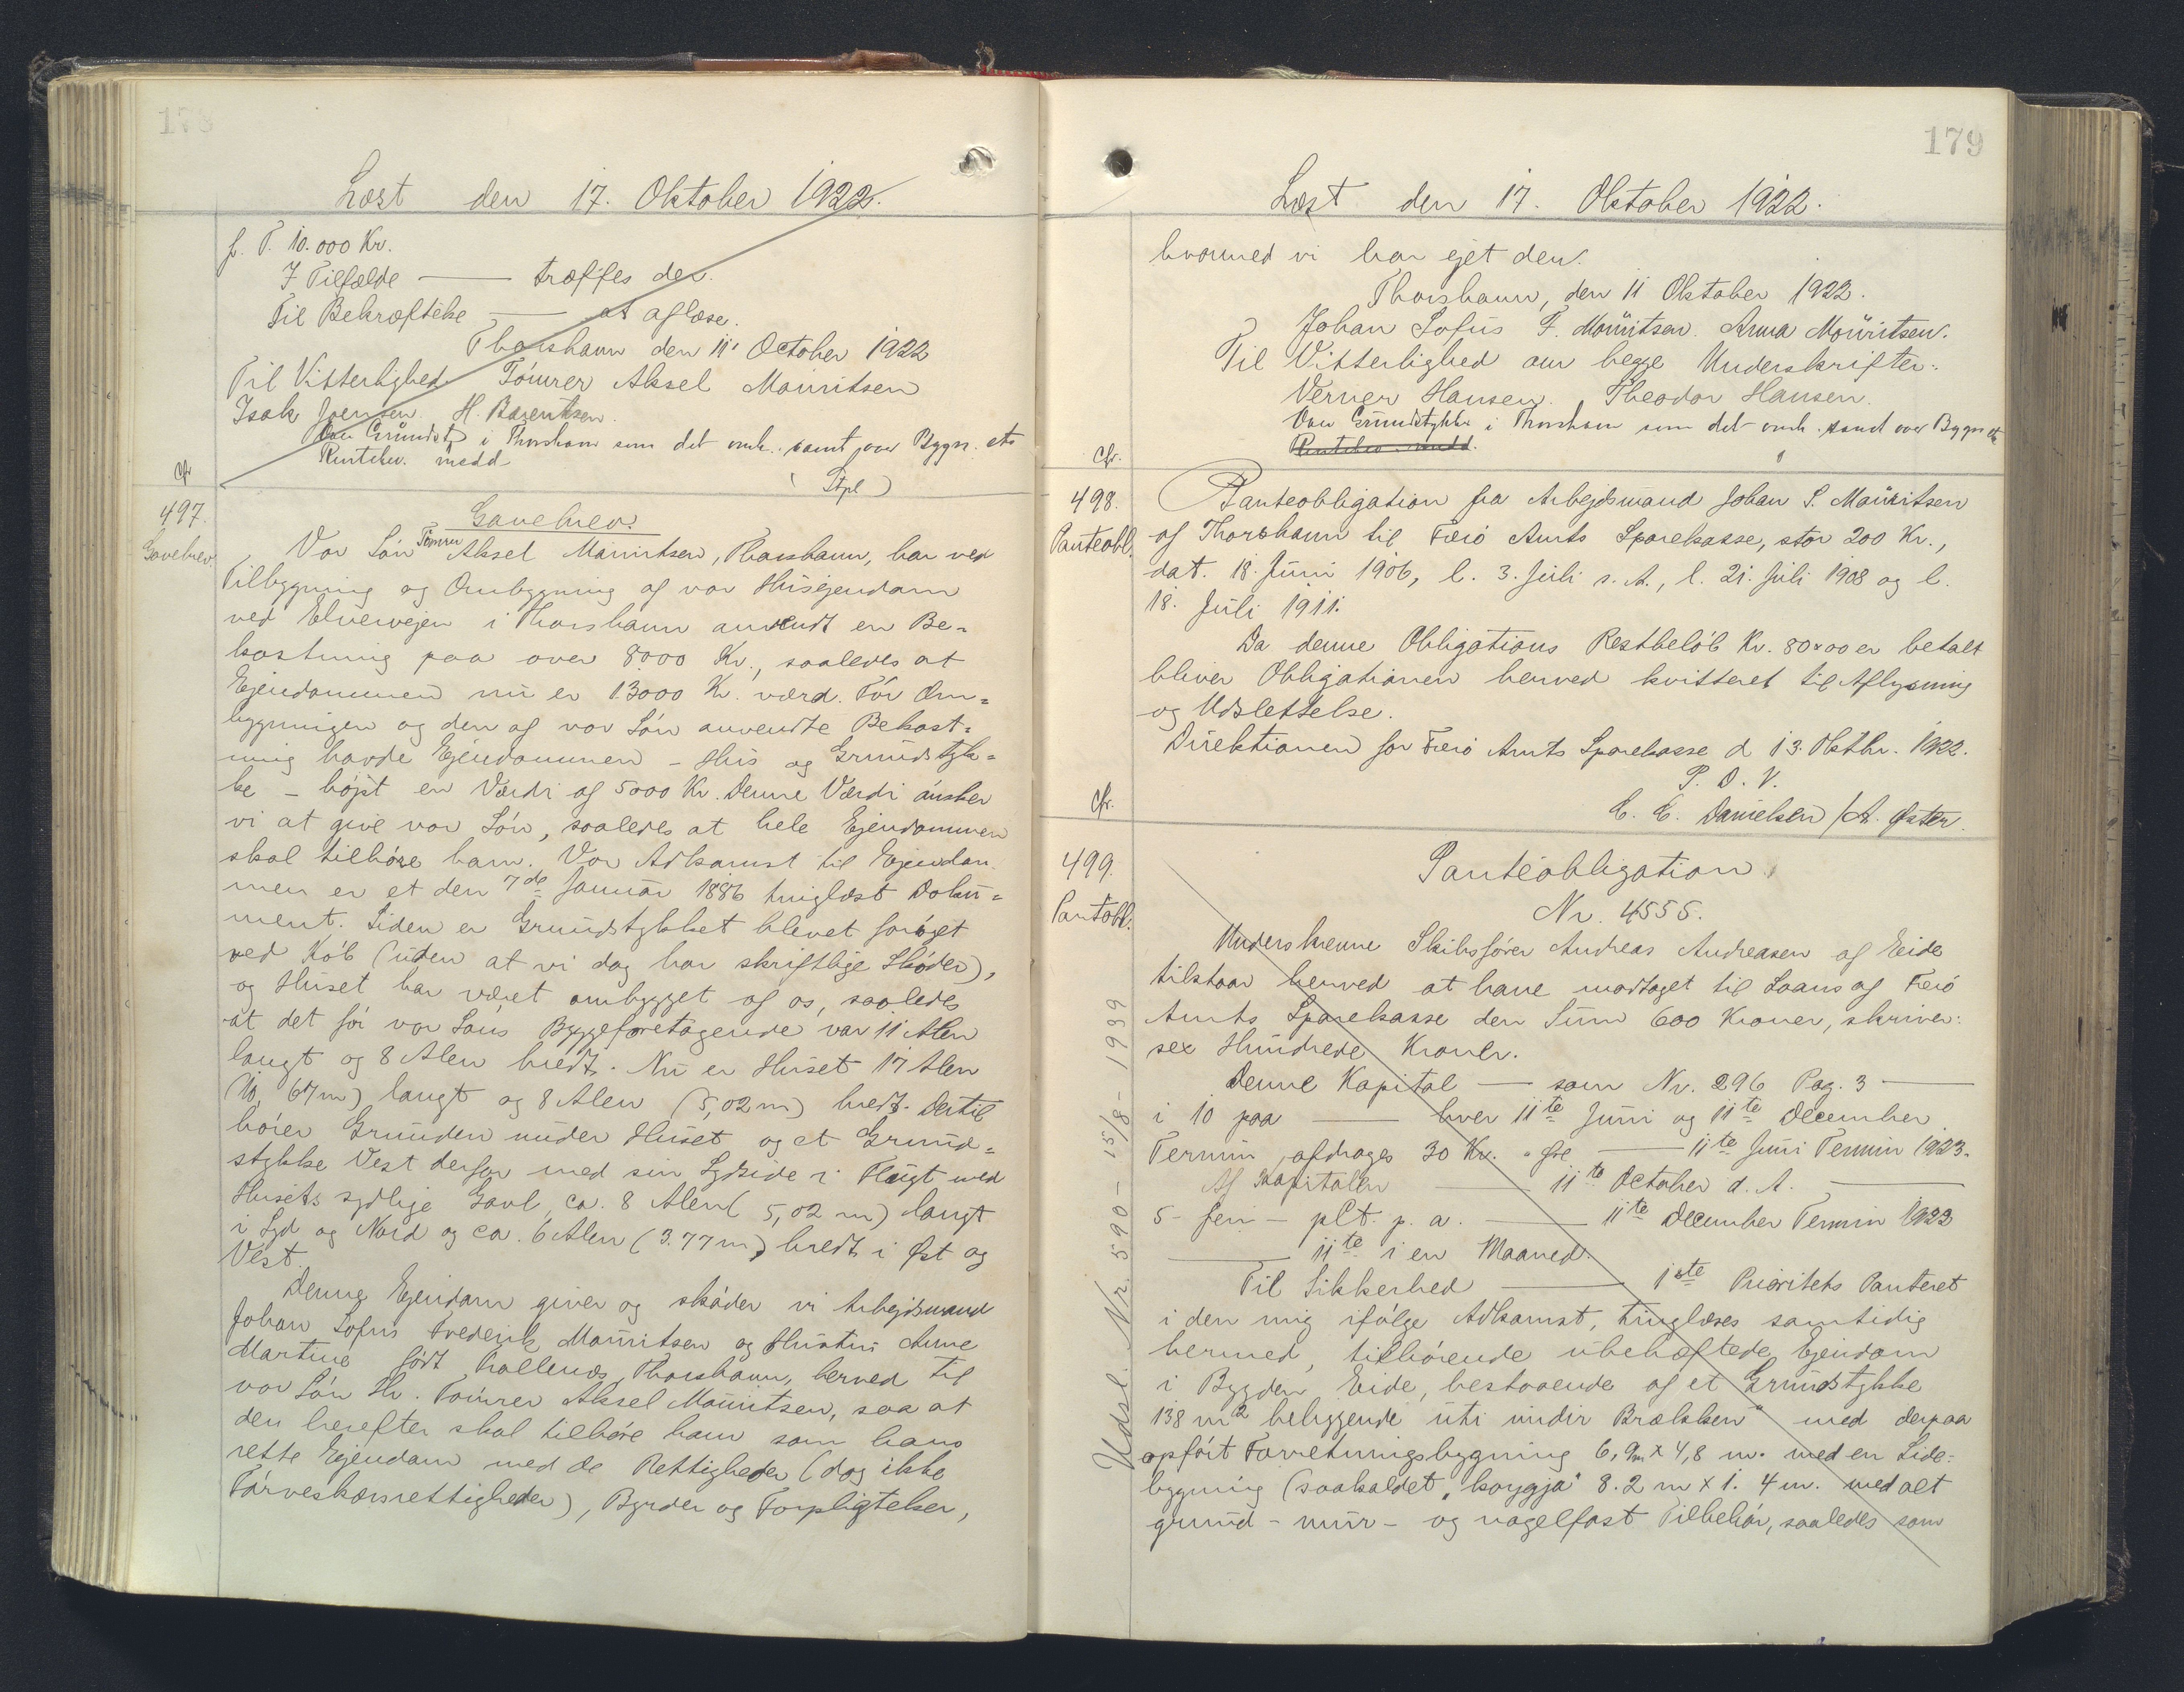 178
Læst den 17. Oktober 1922.
f. T. 10.000 Kr.
I Tilfælde — træffes der.
Til Bekræftelse — at aflæse.
Thorshavn den 11' October 1922
Til Vitterlighed Tómrer Aksel Mouritsen
Isak Joensen. H. Barentsen.
Om Grundst. i Thorshavn som det omh. samt over Byggn. etc
Rentebev. medd.
(Stpl)
Cfr
497.
Gavebrev.
Gavebrev.
Vor Søn Tømrer Aksel Mouritsen, Thorshavn, har ved
Tilbygning og Ombygning af vor Husejendom
ved Elvervejen i Thorshavn anvendt en Be=
kostning paa over 8000 Kr., saaledes at
Ejendommen nu er 13000 Kr. værd. Før Om=
bygningen og den af vor Søn anvendte Bekost=
ning havde Ejendommen - Hus og Grundstyk=
ke - højst en Værdi af 5000 Kr. Denne Værdi ønsker
vi at give vor Søn, saaledes at hele Ejendommen
skal tilhøre ham. Vor Adkomst til Ejendom
men er et den 7de Januar 1886 tinglæst Doku=
ment. Siden er Grundstykket blevet forøget
ved Køb (uden at vi dog har skriftlige Skøder),
og Huset har været ombygget af os, saaledes
at det før vor Søns Byggeforetagende var 11 Alen
langt og 8 Alen bredt. Nu er Huset 17 Alen
(10,67m) langt og 8 Alen (5,02m) bredt. Dertil
hører Grunden under Huset og et Grund=
stykke Vest derfor med sin Sydside i Flugt med
Husets sydlige Gavl, ca. 8 Alen (5,02 m) langt
i Syd og Nord og ca. 6 Alen (3.77m) bredt i Øst og
Vest.
Denne Ejendom giver og skøder vi Arbejdsmand
Johan Sofus Frederik Mouritsen og Hustru Anne
Martine født Thorshavn, herved til
vor Søn Hr. Tømrer Aksel Mouritsen, saa at
den herefter skal tilhøre ham som hans
rette Ejendom med de Rettigheder (dog ikke
Tørveskærsrettigheder), Byrder og Forpligtelser,
179
Læst den 17. Oktober 1922.
hvormed vi har ejet den.
Thorshavn, den 11 Oktober 1922.
Johan Sofus F. Mouritsen. Anna Mouritsen.
Til Vitterlighed om begge Underskrifter:
Verner Hansen. Theodor Hansen.
Om Grundstykke i Thorshavn som det omh. samt over Byggn etc
Rentebev. medd.
Cfr.
498.
Panteobl.
Panteobligation fra Arbejdsmand Johan S. Mauritsen
af Thorshavn til Færø Amts Sparekasse, stor 200 Kr.,
dat. 18. Juni 1906, l. 3. Juli s. A., l. 21. Juli 1908 og l.
18. Juli 1911.
Da denne Obligations Restbeløb Kr. 80.00 er betalt
bliver Obligationen herved kvitteret til Aflysning
og Udslettelse.
Direktionen for Færø Amts Sparekasse d 13. Oktbr. 1922.
P. D. V.
C. C. Danielsen / A. Øster.
Cfr.
499.
Pantobl.
Panteobligation
Nr. 4555.
Underskrevne Skibsfører Andreas Andreasen af Eide
tilstaar herved at have modtaget til Laans af Færø
Amts Sparekasse den Sum 600 Kroner, skriver:
sex Hundrede Kroner.
Denne Kapital — som Nr. 296 Pag. 3 —
i 10 paa — hver 11te Juni og 11te December
Termin afdrages 30 Kr. " Øre — 11te Juni Termin 1923.
Af Kapitalen — 11te October d. A. —
5 - fem - pCt. p. a. — 11te December Termin 1922
— 11te i en Maaned.
Til Sikkerhed — 1ste Prioritets Panteret
i den mig ifølge Adkomst, tinglæses samtidig
hermed, tilhørende ubehæftede Ejendom
i Bygden Eide, bestaaende af et Grundstykke
138 m2 beliggende uti undir Brækken" med derpaa
opført Forretningsbygning 6,9m x 4,8 m. med en Side=
bygning (saakaldet "koyggja" 8.2 m x 1. 4 m. med alt
grund - mur - og nagelfast Tilbehør, saaledes som
Udsl. Nr. 590 - 15/8 - 1939